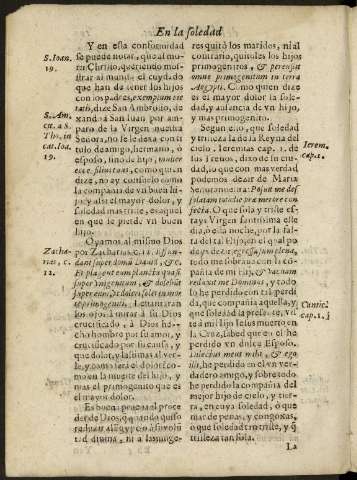 En la soledad
Y en esta conformidad
se puede notar, que al mo-
rir Christo, queriendo mos-
trar al mundo el cuydado
que han de tener los hijos
con los padres,
dize San Ambrosio, de
xando a San Iuan por am-
paro de la Virgen nuestra
Señora, no se le dexa con ti-
tulo de amigo, hermano, ò
esposo, sino de hijo,
como quien
dize, no ay consuelo como
la compañia de vn buen hi-
jo, y assi el mayor dolor, y
soledad mas triste, es aquel
en que se pierde vn buen
hijo.
Oyamos al mismo Dios
por Zacharias
&c.
Et plangent eum planctu quasi
super vnigenitum, & dolebũt
super eum, vt doleri solet in mor
te primogeniti. Leuantaràn
los ojos à mirar à su Dios
crucificado, à Dios he-
cho hombre por su amor, y
crucificado por sus
que dolor, y lastimas al ver-
le, y como serà el dolor? co-
mo en la muerte del hijo, y
mas el primogenito que es
el mayor dolor.
Es buen prueua el proce-
der de Dios, quando quiso
dar
tud diuina, ni a las muge-
S. Ioan.
19.
S. Am.
cit. a S.
Tho. in
cat. Ioa.
19.
Zacha-
rias, c.
12.
res quitò los maridos, ni al
contrario, quitòles los hijos
primogenitos, & percussit
omne primogenitum in terra
Aegypti. Como quien dize
es el mayor dolor la sole-
dad, y ausencia de vn hijo,
y mas primogenito.
Segun esto, que soledad
y tristeza la de la Reyna del
cielo, Ieremias cap. 1. de
sus Trenos, dixo de su ciu-
dad, lo que con mas verdad
podemos dezir de Maria
Señora nuestra: Posuit me de-
solatam tota die moerore con-
fecta. O que sola y triste es-
tays Virgen santissima este
dia, ò esta noche, por la fal-
ta de tal Hijo, en el qual po
deys dezir, egressa sum plena,
todo me sobraua con la cõ-
pañia de mi hijo, & vacuam
reduxit me Dominus, y todo
lo he perdido con esta perdi
da, que compañia aquella, y
que soledad la presente, vi-
te à mi hijo
la Cruz, sabed que en el he
perdido vn dulce Esposo.
Dilectus meus mihi, & ego
illi, he perdido en el vn ver-
dadero amigo, y sobre todo
he perdido la compañia del
mejor hijo de cielo, y tier-
ra, en cuya soledad, ò que
mar de penas, y congoxas,
ò que soledad tan triste, y q̃
tristeza tan sola.
Ierem.
cap. 1.
Cantic.
cap. 1.
La